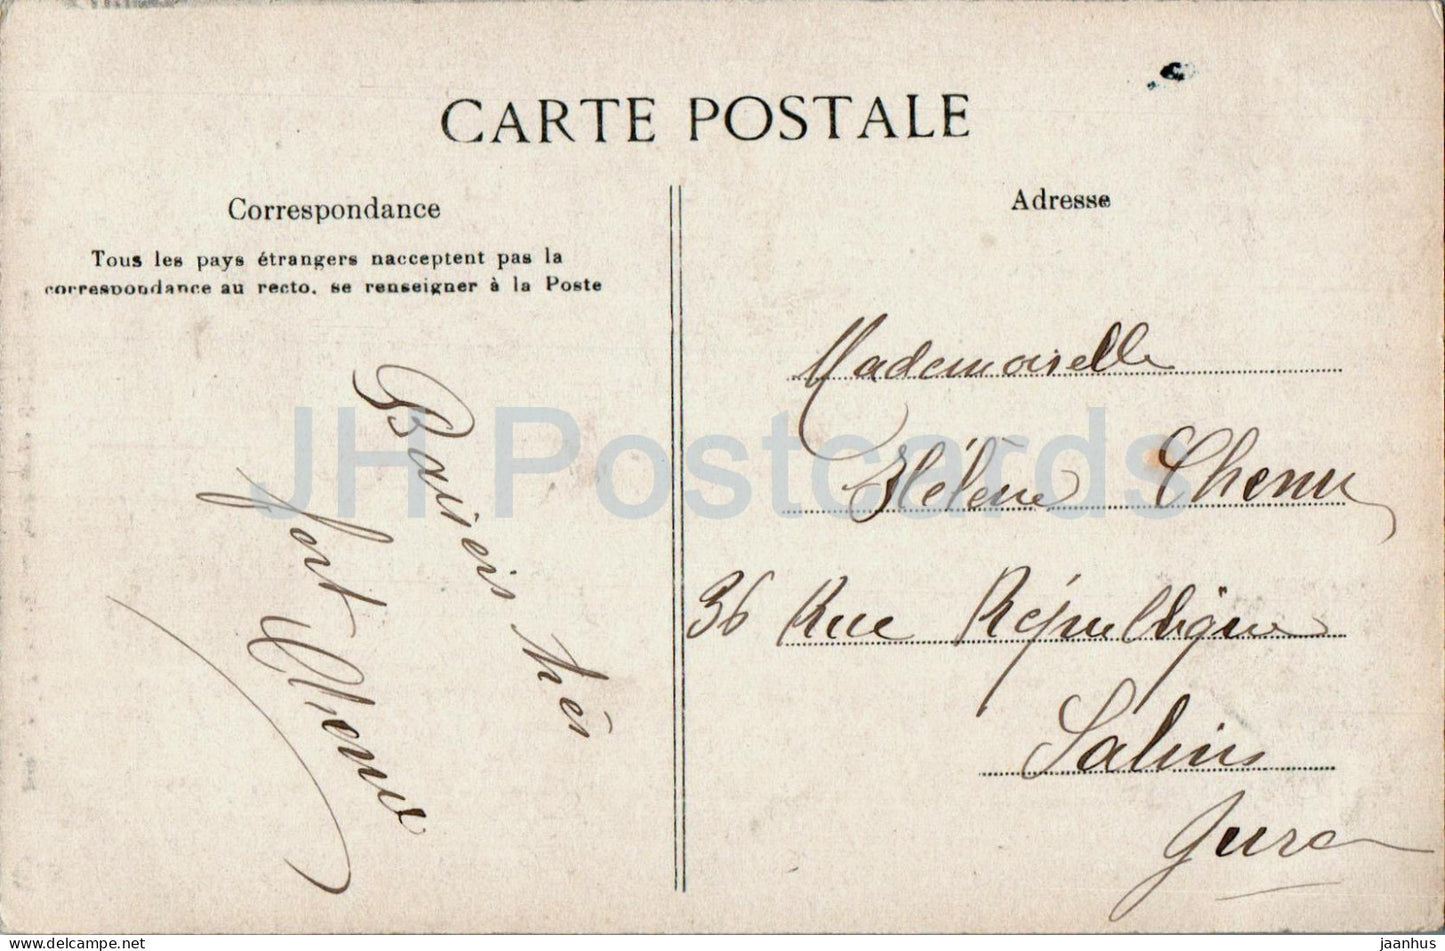 CARTE POSTALE
Correspondance
Tous les pays étrangers nacceptent pas la
correspondance au recto, se renseigner à la Poste
Baisers très
fort
Chenu
Adresse
Mademoiselle
Hélène Chenu
36 Rue République
Salins
Jura
JH Postcards
delcampe.net
jaanhus